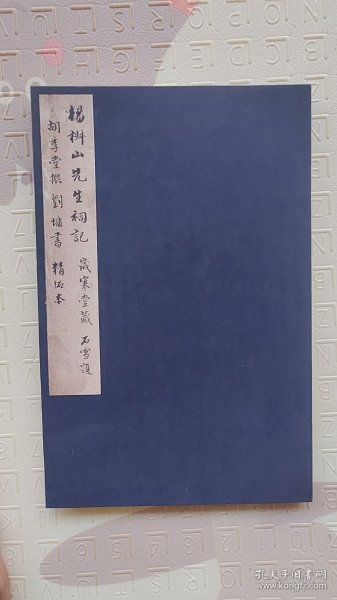 楊椒山先生祠記 歲寒堂藏 石雪題
胡季堂撰 劉墉書 精拓本
孔夫子旧书网
www.kongfz.com